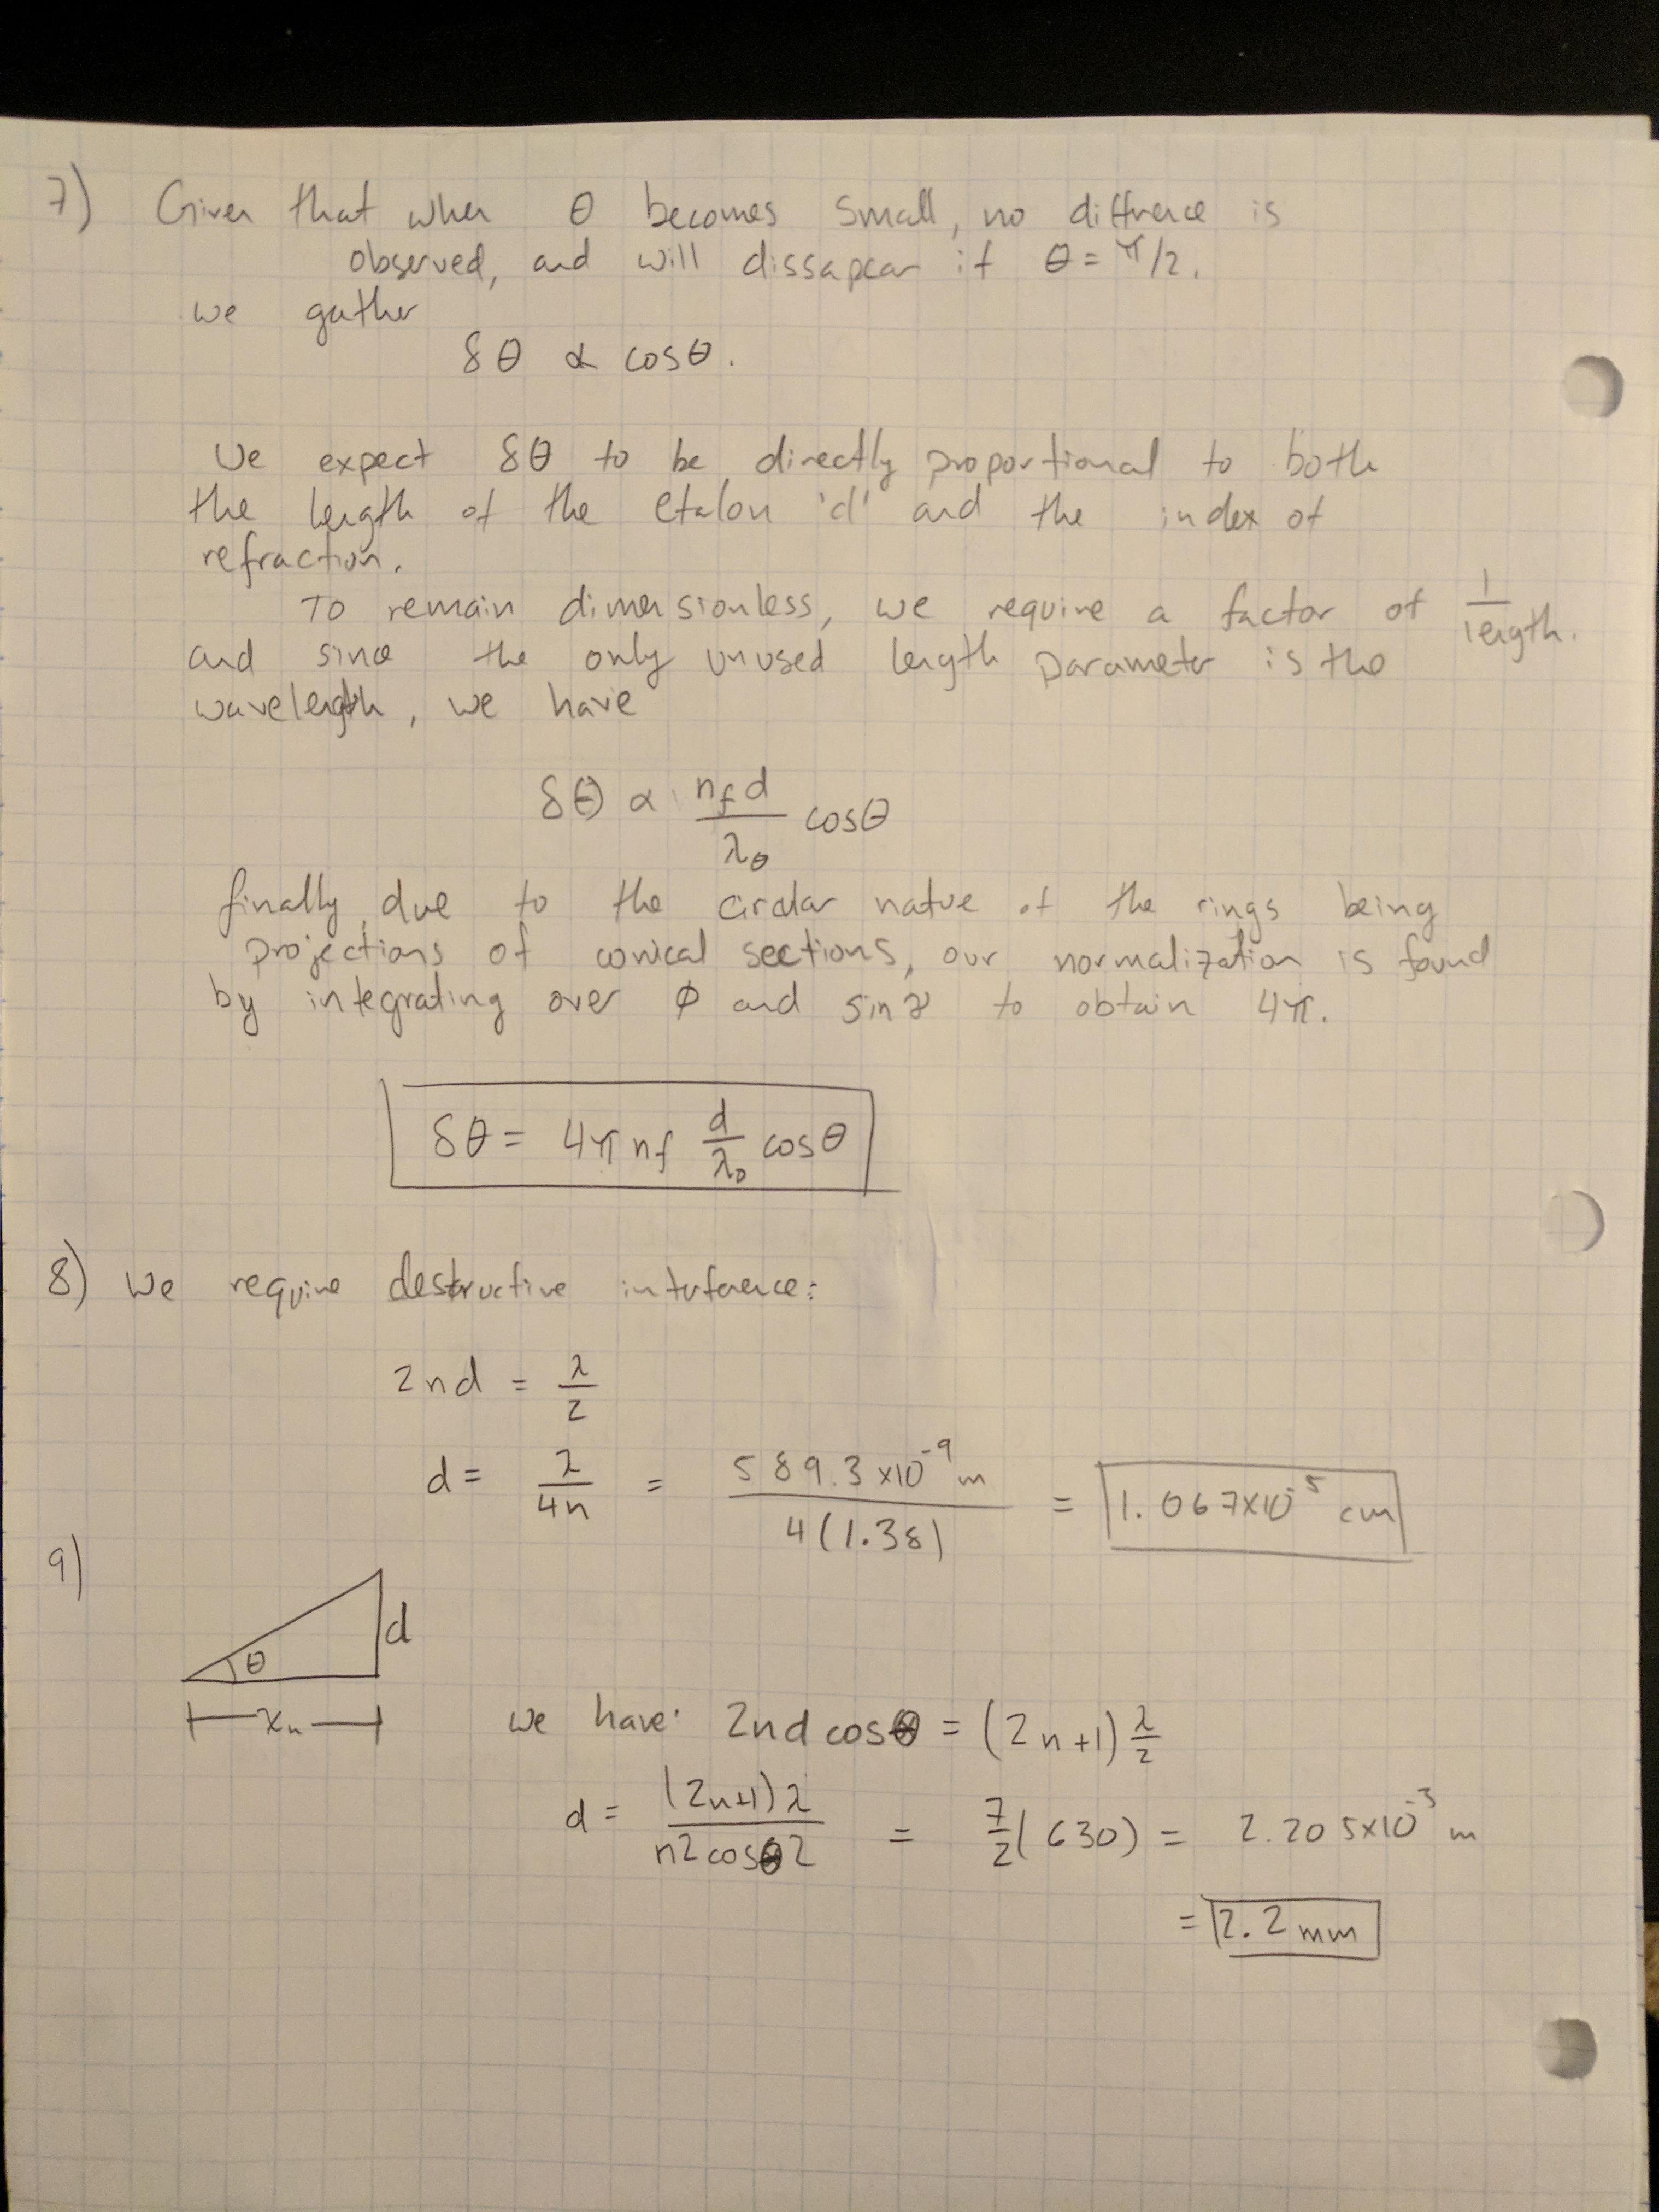 7) Given that when θ becomes small, no diffrence is
observed, and will dissapear if θ = π/2.
we gather
δθ ∝ cosθ.
We expect δθ to be directly proportional to both
the length of the etalon 'd' and the index of
refraction.
To remain dimensionless, we require a factor of 1/length.
and since the only unused length parameter is the
wavelength, we have
δθ ∝ n_f d/λ_0 cosθ
finally, due to the circular nature of the rings being
projections of conical sections, our normalization is found
by integrating over φ and sin to obtain 4π.
δθ = 4π n_f d/λ_0 cosθ
8) We require destructive interference:
2nd = λ/2
d = λ/4n = 589.3×10^-9 m / 4(1.38) = 1.067×10^-5 cm
9)
d
θ
x_n
we have: 2nd cosθ = (2n+1) λ/2
d = (2n+1)λ / n2cosθ2 = 7/2(630) = 2.205×10^-3 m
= 2.2 mm